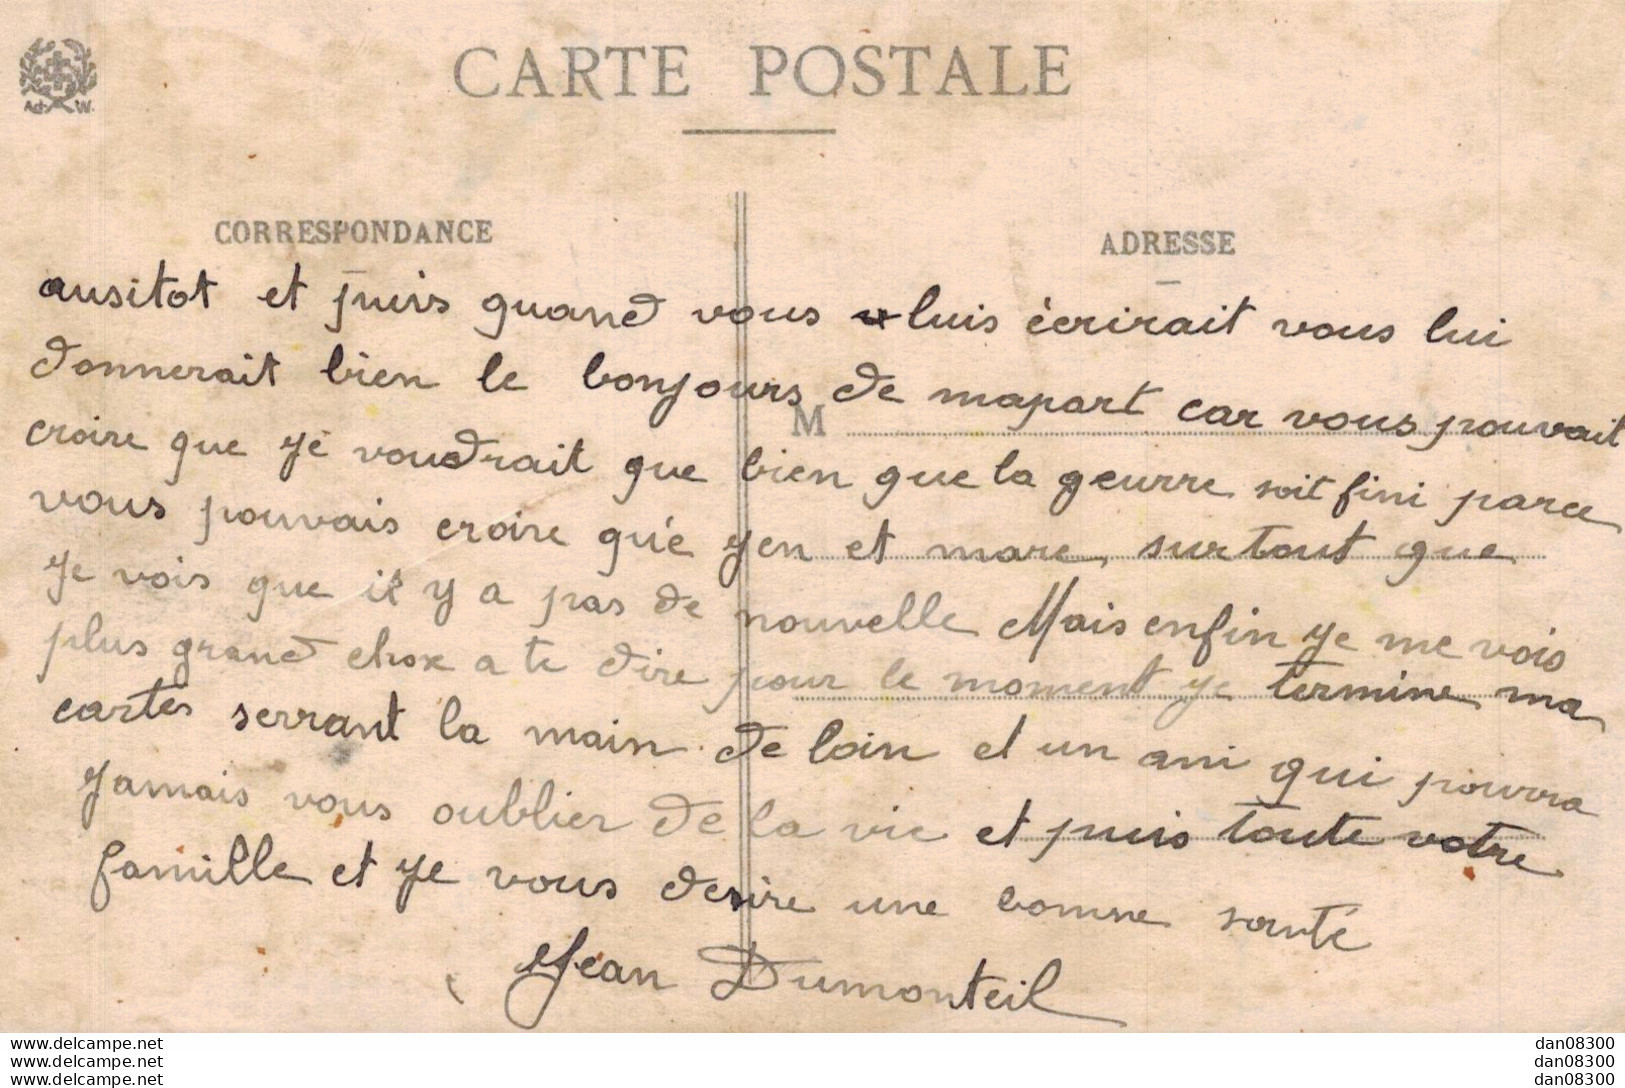 CARTE POSTALE
Ad. W.
CORRESPONDANCE
ADRESSE
ausitot et puis quand vous luis écrirait vous lui
donnerait bien le bonjours de mapart car vous pouvait
M
croire que je voudrait que bien que la geurre soit fini parce
vous pouvais croire qu'é jen et mare surtout que
je vois que il y a pas de nouvelle Mais enfin je me vois
plus grand chose a te dire pour le moment je termine ma
cartes serrant la main de loin et un ami qui pourra
jamais vous oublier de la vie et puis toute votre
famille et je vous desire une bonne santé
Jean Dumonteil
www.delcampe.net
www.delcampe.net
www.delcampe.net
dan08300
dan08300
dan08300